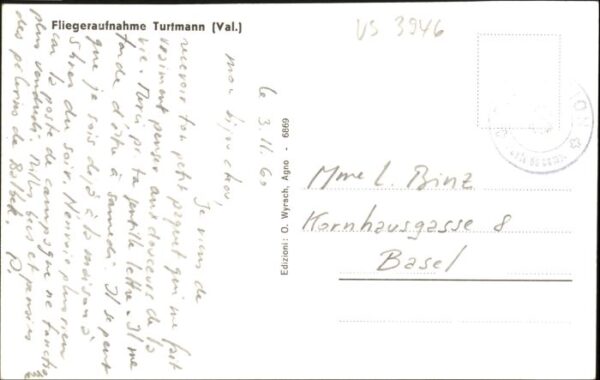 Fliegeraufnahme Turtmann (Val.)
VS 3946
le 3.11.60
mon bijou chou,
Je viens de
recevoir ton petit paquet qui me fait
vraiment penser aux douceurs de la
vie. Merci pr ta gentille lettre. Il me
tarde d'être à samedi. Il se peut
que je sois déjà à la maison à
5 hres du soir. N'envoie plus rien
car la poste de campagne ne fonctionne
plus vendredi. Mille bec et pensées
des pèlerins de
Edizioni: O. Wyrsch, Agno - 6869
Mme L. Binz
Kornhausgasse 8
Basel